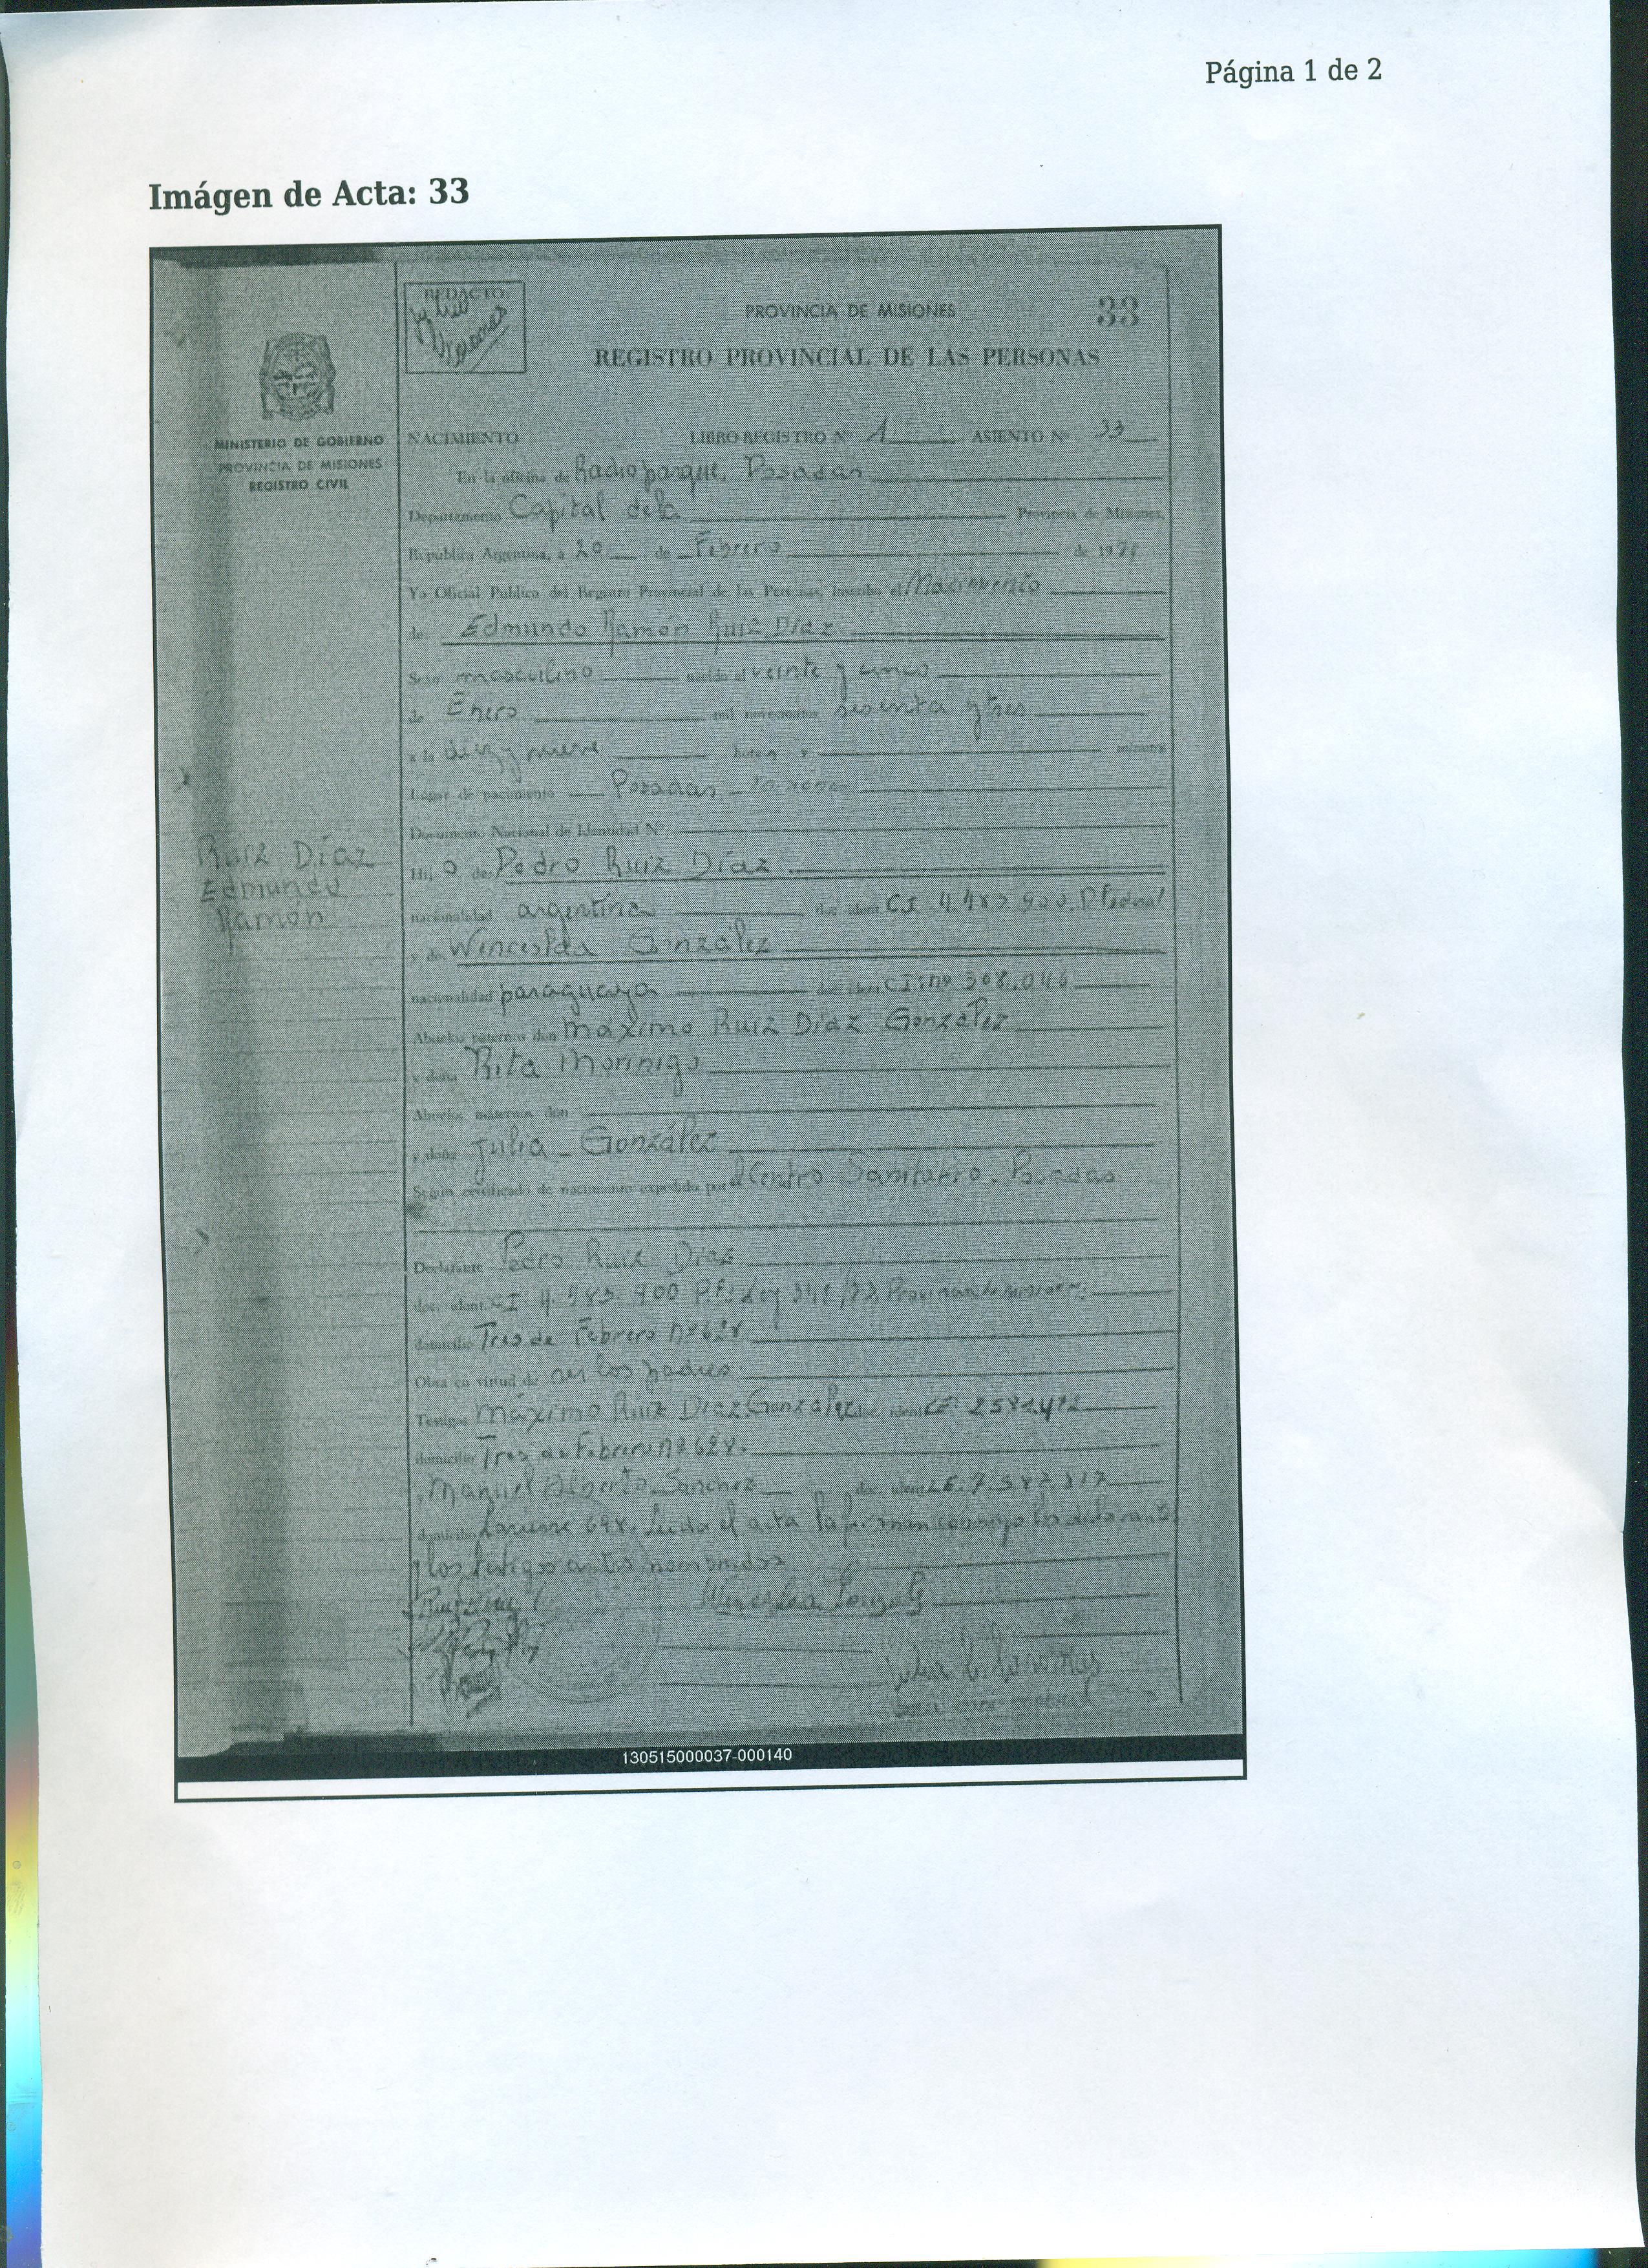 Página 1 de 2
Imágen de Acta: 33
REDACTO:
PROVINCIA DE MISIONES
33
REGISTRO PROVINCIAL DE LAS PERSONAS
MINISTERIO DE GOBIERNO
PROVINCIA DE MISIONES
REGISTRO CIVIL
NACIMIENTO LIBRO REGISTRO Nº 1 ASIENTO Nº 33
En la oficina de Radioparque, Posadas
Departamento Capital de la Provincia de Misiones,
República Argentina, a 20 de Febrero de 197
Yo Oficial Público del Registro Provincial de las Personas, inscribo el Nacimiento
de Edmundo Ramón Ruiz Díaz
Sexo masculino nacido el veinte y cinco
de Enero mil novecientos sesenta y tres
a la diez y nueve horas y minutos
Lugar de nacimiento Posadas - Misiones
Documento Nacional de Identidad Nº
Hijo de Pedro Ruiz Díaz
nacionalidad argentina doc. ident. CI P. Federal
y de Wenceslda González
nacionalidad paraguaya doc. ident. CI: nº 308.046
Abuelos paternos don Máximo Ruiz Díaz González
y doña Rita Morinigo
Abuelos maternos don
y doña Julia - González
Según certificado de nacimiento expedido por el Centro Sanitario. Posadas
Ruiz Díaz
Edmundo
Ramón
Declarante Pedro Ruiz Díaz
doc. ident. CI 900 P.F.: Ley
domicilio Tres de Febrero nº 628
Obra en virtud de ser los padres
Testigos Máximo Ruiz Díaz González doc. ident.
domicilio Tres de Febrero nº 628.
Manuel Alberto Sánchez doc. ident.
domicilio leída el acta la firman conmigo los declarantes
y los testigos antes nombrados
130515000037-000140